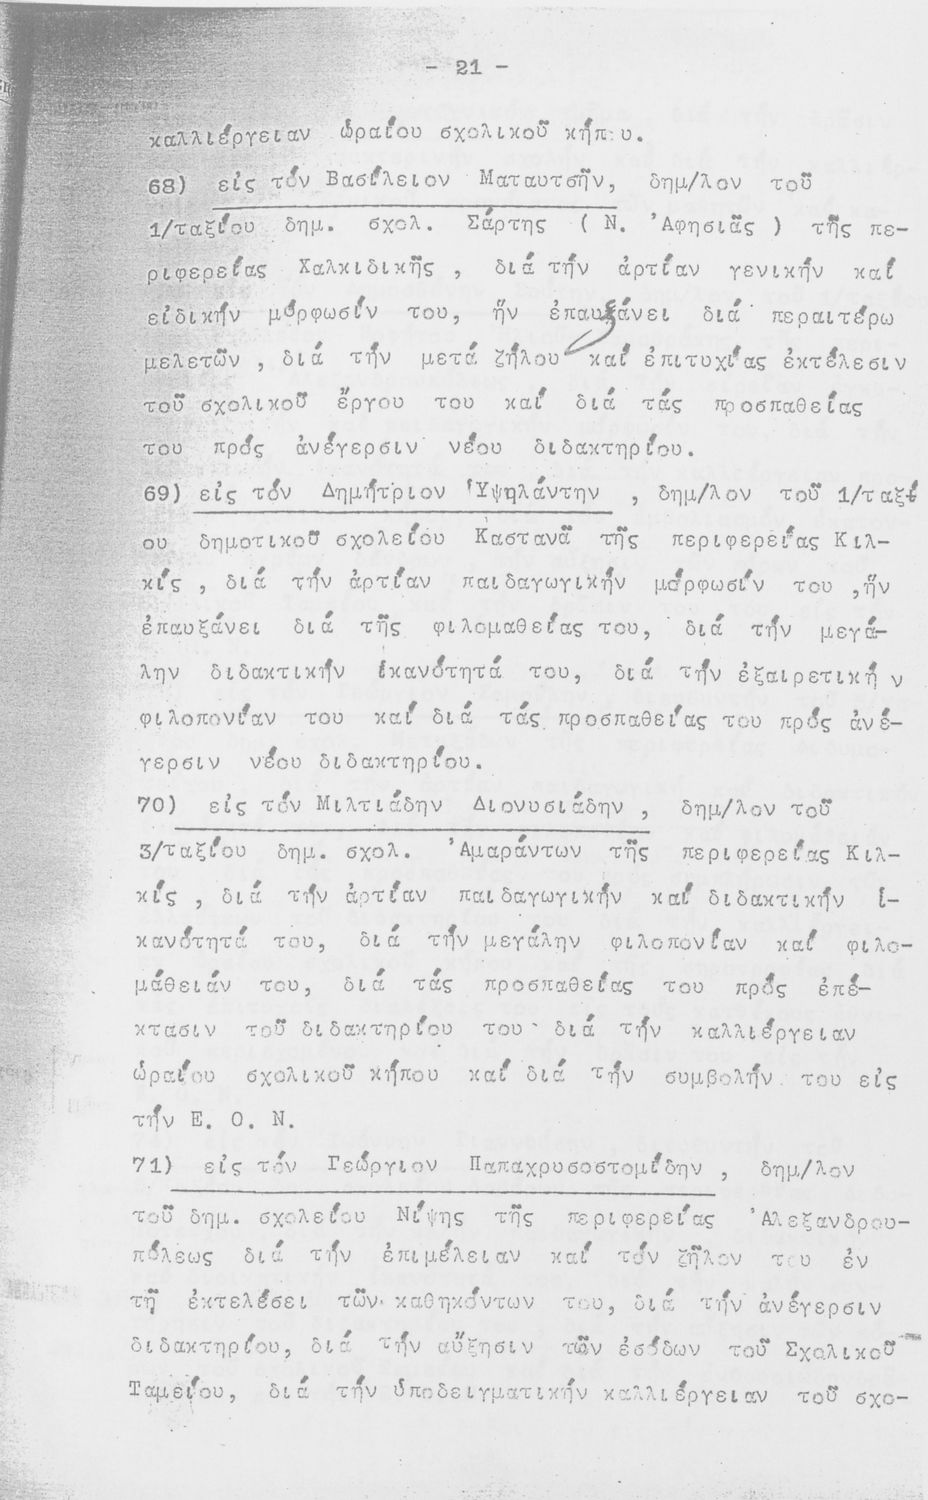 - 21 -
καλλιέργειαν ὡραίου σχολικοῦ κήπου.
68) εἰς τόν Βασίλειον Ματαυτσῆν, δημ/λον τοῦ
1/ταξίου δημ. σχολ. Σάρτης ( Ν. Ἀφησιᾶς ) τῆς πε-
ριφερείας Χαλκιδικῆς , διά τήν ἀρτίαν γενικήν καί
εἰδικήν μόρφωσίν του, ἥν ἐπαυξάνει διά περαιτέρω
μελετῶν , διά τήν μετά ζήλου καί ἐπιτυχίας ἐκτέλεσιν
τοῦ σχολικοῦ ἔργου του καί διά τάς προσπαθείας
του πρός ἀνέγερσιν νέου διδακτηρίου.
69) εἰς τόν Δημήτριον Ὑψηλάντην , δημ/λον τοῦ 1/ταξί
ου δημοτικοῦ σχολείου Καστανᾶ τῆς περιφερείας Κιλ-
κίς , διά τήν ἀρτίαν παιδαγωγικήν μόρφωσίν του ,ἥν
ἐπαυξάνει διά τῆς φιλομαθείας του, διά τήν μεγά-
λην διδακτικήν ἱκανότητά του, διά τήν ἐξαιρετικήν
φιλοπονίαν του καί διά τάς προσπαθείας του πρός ἀνέ-
γερσιν νέου διδακτηρίου.
70) εἰς τόν Μιλτιάδην Διονυσιάδην , δημ/λον τοῦ
3/ταξίου δημ. σχολ. Ἀμαράντων τῆς περιφερείας Κιλ-
κίς , διά τήν ἀρτίαν παιδαγωγικήν καί διδακτικήν ἱ-
κανότητά του, διά τήν μεγάλην φιλοπονίαν καί φιλο-
μάθειάν του, διά τάς προσπαθείας του πρός ἐπέ-
κτασιν τοῦ διδακτηρίου του· διά τήν καλλιέργειαν
ὡραίου σχολικοῦ κήπου καί διά τήν συμβολήν του εἰς
τήν Ε. Ο. Ν.
71) εἰς τόν Γεώργιον Παπαχρυσοστομίδην , δημ/λον
τοῦ δημ. σχολείου Νίψης τῆς περιφερείας Ἀλεξανδρου-
πόλεως διά τήν ἐπιμέλειαν καί τόν ζῆλον του ἐν
τῇ ἐκτελέσει τῶν καθηκόντων του, διά τήν ἀνέγερσιν
διδακτηρίου, διά τήν αὔξησιν τῶν ἐσόδων τοῦ Σχολικοῦ
Ταμείου, διά τήν ὑποδειγματικήν καλλιέργειαν τοῦ σχο-